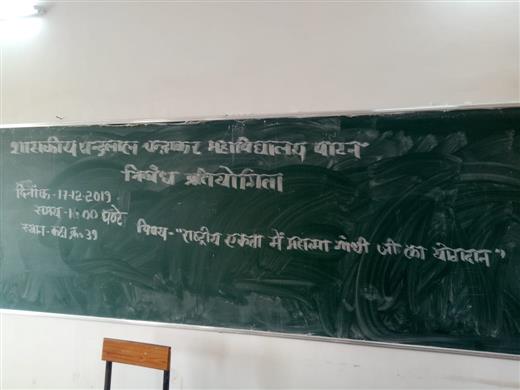 शासकीय चन्दुलाल चन्द्राकर महाविद्यालय पाटन
निबंध प्रतियोगिता
दिनांक-17-12-2019
समय-1:00 घण्टे
स्थान-कक्ष क्रं-39
विषय-"राष्ट्रीय एकता में महात्मा गांधी जी का योगदान"